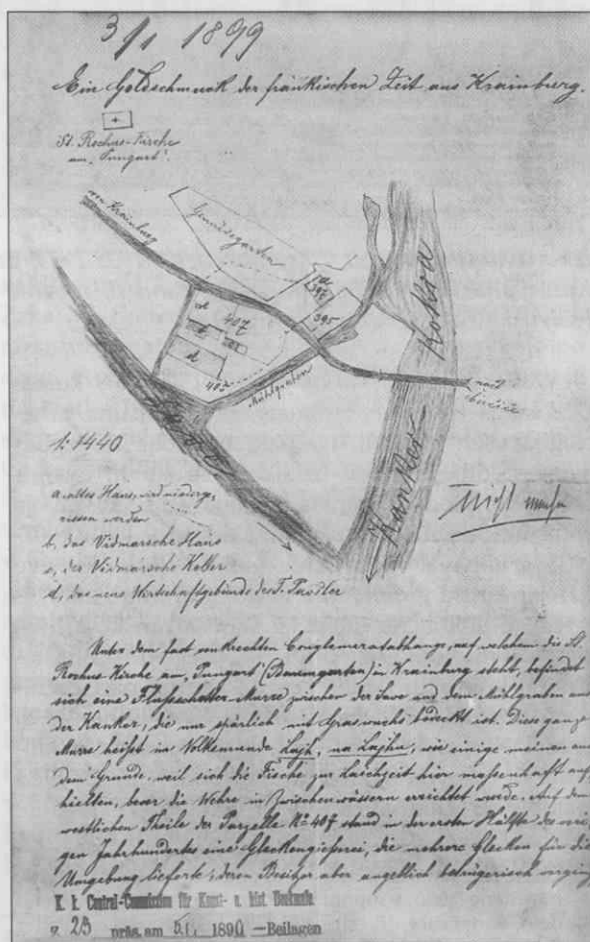 3/1 1899
Ein Goldschmuck der fränkischen Zeit aus Krainburg.
St. Rochus-Kirche
am "Pungart".
von Krainburg
Gemüsegarten
a
395
d
407
d
403
Mühlgraben
Kokra
Kanker
nach
1:1440
a, altes Haus, wird niederge-
rissen werden
b, das Vidmarsche Haus
c, der Vidmarsche Keller
d, das neue Wirtschaftgebäude des T. Pavšler
Unter dem fast senkrechten Conglomeratabhange, auf welchem die St.
Rochus-Kirche am "Pungart" (Baumgarten) in Krainburg steht, befindet
sich eine Flussschotter-Murre zwischen der Save und dem Mühlgraben aus
der Kanker, die nur spärlich mit Graswuchs bedeckt ist. Diese ganze
Murre heißt im Volksmunde Lajh, na Lajhu, wie einige meinen aus
dem Grunde, weil sich die Fische zur Laichzeit hier massenhaft auf-
hielten, bevor die Wehre in Zwischenwässern errichtet wurde. Auf dem
westlichen Theile der Parzelle No 407 stand in der ersten Hälfte des vori-
gen Jahrhundertes eine Glockengießerei, die mehrere Glocken für die
Umgebung lieferte, deren Besitzer aber angeblich betrügerisch vorging
K. k. Central-Commission für Kunst- u. hist. Denkmale
Z. 25 präs. am 5/1. 1899 — Beilagen